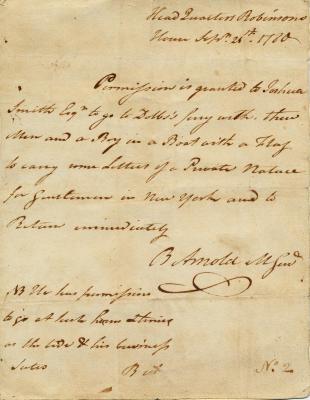 Head Quarters Robinsons
House Sepr. 20th. 1780
Permission is granted to Joshua
Smith Esqr. to go to Dobbs's Ferry with three
Men and a Boy in a Boat with a Flag
to carry some Letters of a Private Nature
for Gentlemen in New York and to
Return immediately
B Arnold M Genl
NB He has permission
to go at such hours & times
as the tide & his business
Suits B A
No. 2